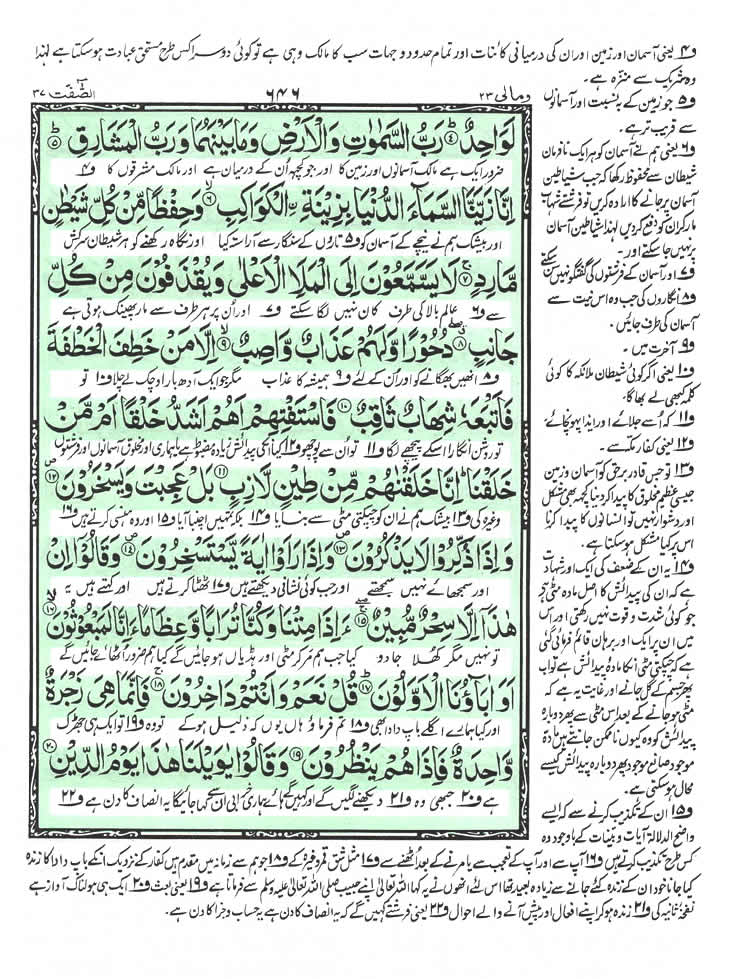 و۴ یعنی آسمان اور زمین اور ان کی درمیانی کائنات اور تمام حدود و جہات سب کا مالک وہی ہے تو کوئی دوسرا کس طرح مستحق عبادت ہوسکتا ہے لہٰذا
وہ شریک سے منزّہ ہے۔
ومالی ۲۳
۶۴۶
الصّٰفّٰت ۳۷
لَوَاحِدٌ ؕ۴ رَبُّ السَّمٰوٰتِ وَالْاَرْضِ وَمَا بَیْنَهُمَا وَرَبُّ الْمَشَارِقِ ؕ۵
ضرور ایک ہے مالک آسمانوں اور زمین کا اور جو کچھ اُن کے درمیان ہے اور مالک مشرقوں کا و۴
اِنَّا زَیَّنَّا السَّمَآءَ الدُّنْیَا بِزِیْنَةِ ۣالْكَوَاكِبِ ۙ۶ وَحِفْظًا مِّنْ كُلِّ شَیْطٰنٍ
اور بیشک ہم نے نیچے کے آسمان کو و۵ تاروں کے سنگار سے آراستہ کیا اور نگاہ رکھنے کو ہر شیطان سرکش
مَّارِدٍ ۚ۷ لَا یَسَّمَّعُوْنَ اِلَى الْمَلَاِ الْاَعْلٰى وَیُقْذَفُوْنَ مِنْ كُلِّ
سے و۶ عالم بالا کی طرف کان نہیں لگا سکتے و۷ اور اُن پر ہر طرف سے مار پھینک ہوتی ہے
جَانِبٍ ۖ۸ دُحُوْرًا وَّلَهُمْ عَذَابٌ وَّاصِبٌ ۙ۹ اِلَّا مَنْ خَطِفَ الْخَطْفَةَ
و۸ انھیں بھگانے کو اور ان کے لئے و۹ ہمیشہ کا عذاب مگر جو ایک آدھ بار اوچک لے چلا و۱۰ تو
فَاَتْبَعَهٗ شِهَابٌ ثَاقِبٌ ۱۰ فَاسْتَفْتِهِمْ اَهُمْ اَشَدُّ خَلْقًا اَمْ مَّنْ
تو روشن انگارا اسکے پیچھے لگا و۱۱ تو اُن سے پوچھو و۱۲ کیا انکی پیدائش زیادہ مضبوط ہے یا ہماری اور مخلوق آسمانوں اور فرشتوں
خَلَقْنَا ؕ اِنَّا خَلَقْنٰهُمْ مِّنْ طِیْنٍ لَّازِبٍ ۱۱ بَلْ عَجِبْتَ وَیَسْخَرُوْنَ ۪۱۲
وغیرہ کی و۱۳ بیشک ہم نے ان کو چپکتی مٹی سے بنایا و۱۴ بلکہ تمہیں اچنبا آیا و۱۵ اور وہ ہنسی کرتے ہیں و۱۶
وَاِذَا ذُكِّرُوْا لَا یَذْكُرُوْنَ ۪۱۳ وَاِذَا رَاَوْا اٰیَةً یَّسْتَسْخِرُوْنَ ۪۱۴ وَقَالُوْۤا اِنْ
اور سمجھائے نہیں سمجھتے اور جب کوئی نشانی دیکھتے ہیں و۱۷ ٹھٹا کرتے ہیں اور کہتے ہیں یہ
هٰذَاۤ اِلَّا سِحْرٌ مُّبِیْنٌ ۚۖ۱۵ ءَاِذَا مِتْنَا وَكُنَّا تُرَابًا وَّعِظَامًا ءَاِنَّا لَمَبْعُوْثُوْنَ ۙ۱۶
تو نہیں مگر کھلا جادو کیا جب ہم مر کر مٹی اور ہڈیاں ہو جائیں گے کیا ہم ضرور اٹھائے جائیں گے
اَوَاٰبَآؤُنَا الْاَوَّلُوْنَ ؕ۱۷ قُلْ نَعَمْ وَاَنْتُمْ دَاخِرُوْنَ ۚ۱۸ فَاِنَّمَا هِیَ زَجْرَةٌ
اور کیا ہمارے اگلے باپ دادا بھی و۱۸ تم فرماؤ ہاں یوں کہ ذلیل ہوکے تو وہ و۱۹ تو ایک ہی جھڑک
وَّاحِدَةٌ فَاِذَا هُمْ یَنْظُرُوْنَ ۱۹ وَقَالُوْا یٰوَیْلَنَا هٰذَا یَوْمُ الدِّیْنِ ۲۰
ہے و۲۰ جبھی وہ و۲۱ دیکھنے لگیں گے اور کہیں گے ہائے ہماری خرابی ان سے کہا جائیگا یہ انصاف کا دن ہے و۲۲
و۵ جو زمین کے بہ نسبت اور آسمانوں
سے قریب تر ہے۔
و۶ یعنی ہم نے آسمان کو ہر ایک نافرمان
شیطان سے محفوظ رکھا کہ جب شیاطین
آسمان پر جانے کا ارادہ کریں تو فرشتے شہاب
مار کر ان کو دفع کردیں لہٰذا شیاطین آسمان
پر نہیں جا سکتے اور۔
و۷ اور آسمان کے فرشتوں کی گفتگو نہیں سن سکتے
و۸ انگاروں کی جب وہ اس نیت سے
آسمان کی طرف جائیں۔
و۹ آخرت میں۔
و۱۰ یعنی اگر کوئی شیطان ملائکہ کا کوئی
کلمہ کبھی لے بھاگا۔
و۱۱ کہ اُسے جلائے اور ایذا پہونچائے۔
و۱۲ یعنی کفار مکہ سے۔
و۱۳ تو جس قادر برحق کو آسمان و زمین
جیسی عظیم مخلوق کا پیدا کردینا کچھ بھی مشکل
اور دشوار نہیں تو انسانوں کا پیدا کرنا
اس پر کیا مشکل ہوسکتا ہے۔
و۱۴ یہ ان کے ضعف کی ایک اور شہادت
ہے کہ ان کی پیدائش کا اصل مادہ مٹی ہے
جو کوئی شدت و قوت نہیں رکھتی اور اس
میں ان پر ایک اور برہان قائم فرمائی گئی
ہے کہ چپکتی مٹی انکا مادہ پیدائش ہے تو اب
پھر جسم کے گل جانے اور غایت یہ ہے کہ
مٹی ہو جانے کے بعد اس مٹی سے پھر دوبارہ
پیدائش کو وہ کیوں ناممکن جانتے ہیں مادہ
موجود صانع موجود پھر دوبارہ پیدائش کیسے
محال ہوسکتی ہے۔
و۱۵ ان کے تکذیب کرنے سے کہ ایسے
واضح الدلالۃ آیات و بینات کے باوجود وہ
کس طرح تکذیب کرتے ہیں و۱۶ آپ سے اور آپ کے تعجب سے یا مرنے کے بعد اُٹھنے سے و۱۷ مثل شق قمر وغیرہ کے و۱۸ جو ہم سے زمانہ میں مقدم ہیں کفار کے نزدیک انکے باپ دادا کا زندہ
کیا جانا خود ان کے زندہ کئے جانے سے زیادہ بعید تھا اس لئے انھوں نے یہ کہا اللہ تعالیٰ اپنے حبیب صلی اللہ تعالیٰ علیہ وسلم سے فرماتا ہے و۱۹ یعنی بعث و۲۰ ایک ہی ہولناک آواز ہے
نفخۂ ثانیہ کی و۲۱ زندہ ہو کر اپنے افعال اور پیش آنے والے احوال و۲۲ یعنی فرشتے کہیں گے کہ یہ انصاف کا دن ہے یہ حساب و جزا کا دن ہے۔